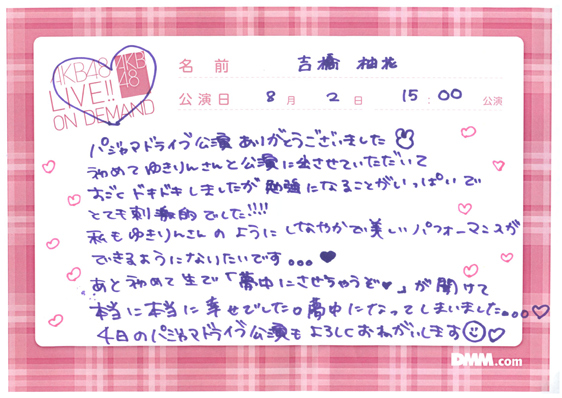 AKB48
LIVE!!
ON DEMAND
AKB
48
名 前 吉橋 柚花
公演日 8 月 2 日 15:00 公演
パジャマドライブ公演ありがとうございました
初めてゆきりんさんと公演に出させていただいて
すごくドキドキしましたが勉強になることがいっぱいで
とても刺激的でした!!!!
私もゆきりんさんのようにしなやかで美しいパフォーマンスが
できるようになりたいです...♥
あと初めて生で「夢中にさせちゃうぞ♥」が聞けて
本当に本当に幸せでした。夢中になってしまいました...♡
4日のパジャマドライブ公演もよろしくおねがいします☺♡
DMM.com